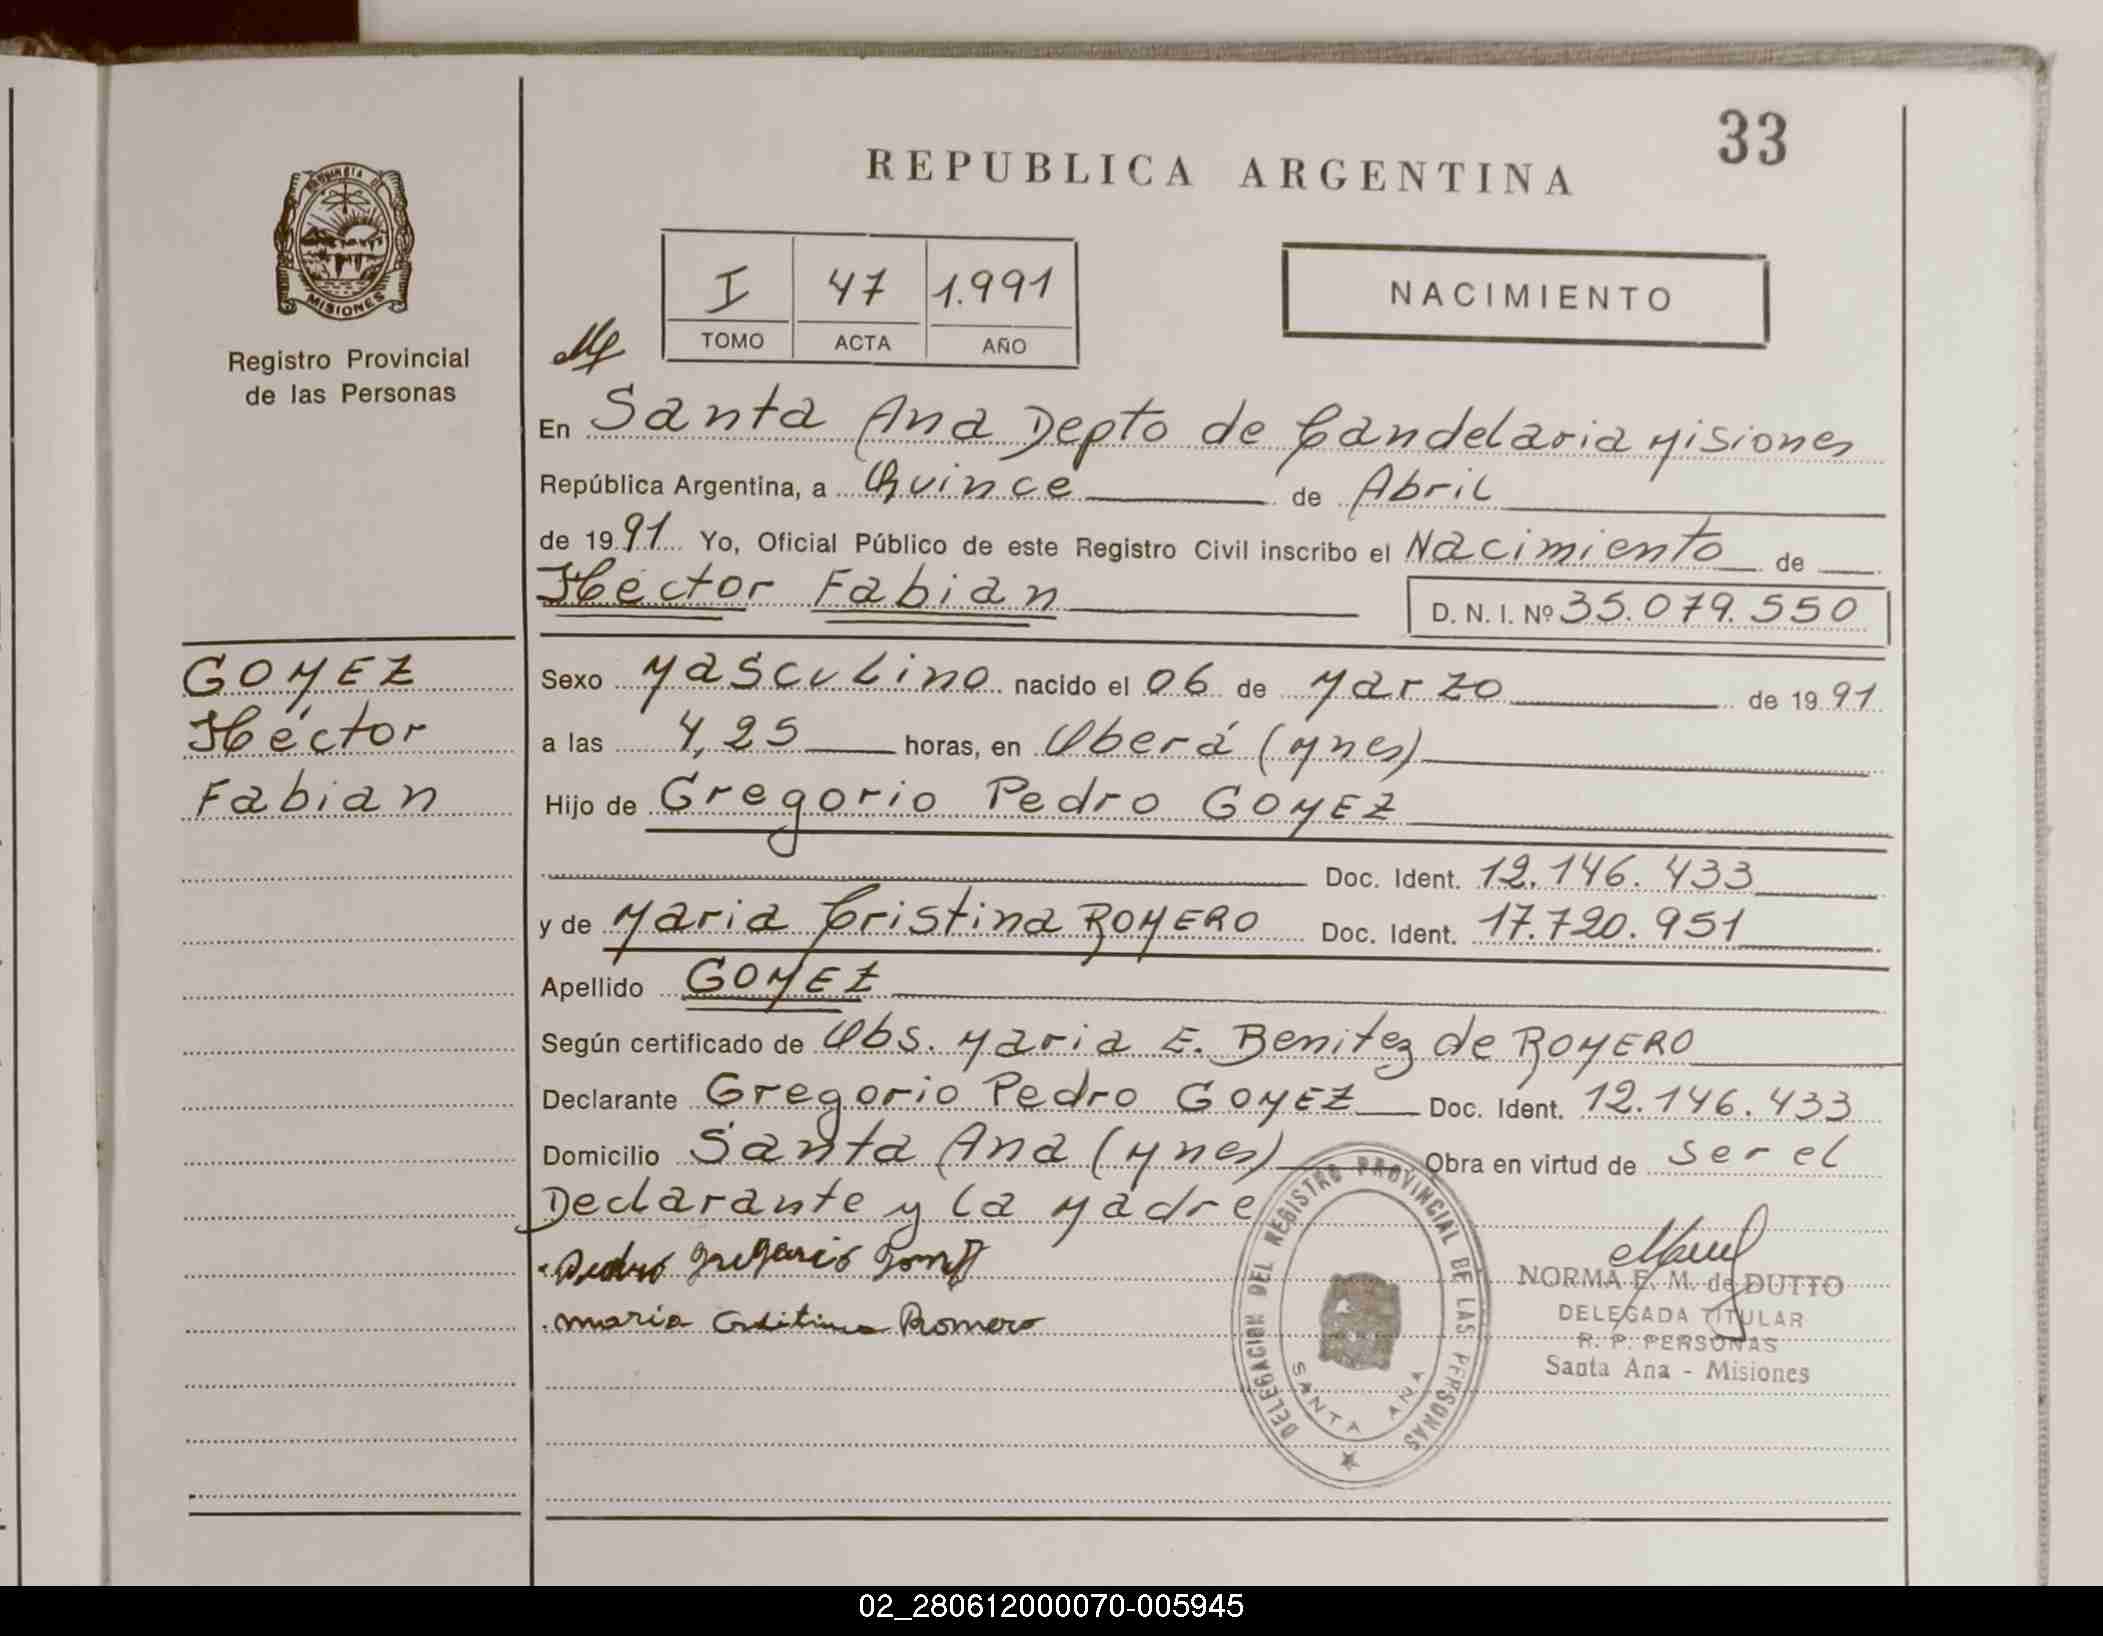 33
REPUBLICA ARGENTINA
PROVINCIA DE
MISIONES
Registro Provincial
de las Personas
I 47 1.991
TOMO ACTA AÑO
NACIMIENTO
En Santa Ana Depto de Candelaria Misiones
República Argentina, a Quince de Abril
de 1991 Yo, Oficial Público de este Registro Civil inscribo el Nacimiento de
Héctor Fabian D. N. I. Nº 35.079.550
GOMEZ
Héctor
Fabian
Sexo Masculino nacido el 06 de Marzo de 1991
a las 4,25 horas, en Oberá (Mnes)
Hijo de Gregorio Pedro GOMEZ
Doc. Ident. 12.146.433
y de Maria Cristina ROMERO Doc. Ident. 17.720.951
Apellido GOMEZ
Según certificado de Obs. Maria E. Benitez de ROMERO
Declarante Gregorio Pedro GOMEZ Doc. Ident. 12.146.433
Domicilio Santa Ana (Mnes) Obra en virtud de ser el
Declarante y la Madre
Pedro Gregorio Gomez
Maria Cristina Romero
DELEGACION DEL REGISTRO PROVINCIAL DE LAS PERSONAS
SANTA ANA
NORMA E. M. de DUTTO
DELEGADA TITULAR
R. P. PERSONAS
Santa Ana - Misiones
02_280612000070-005945